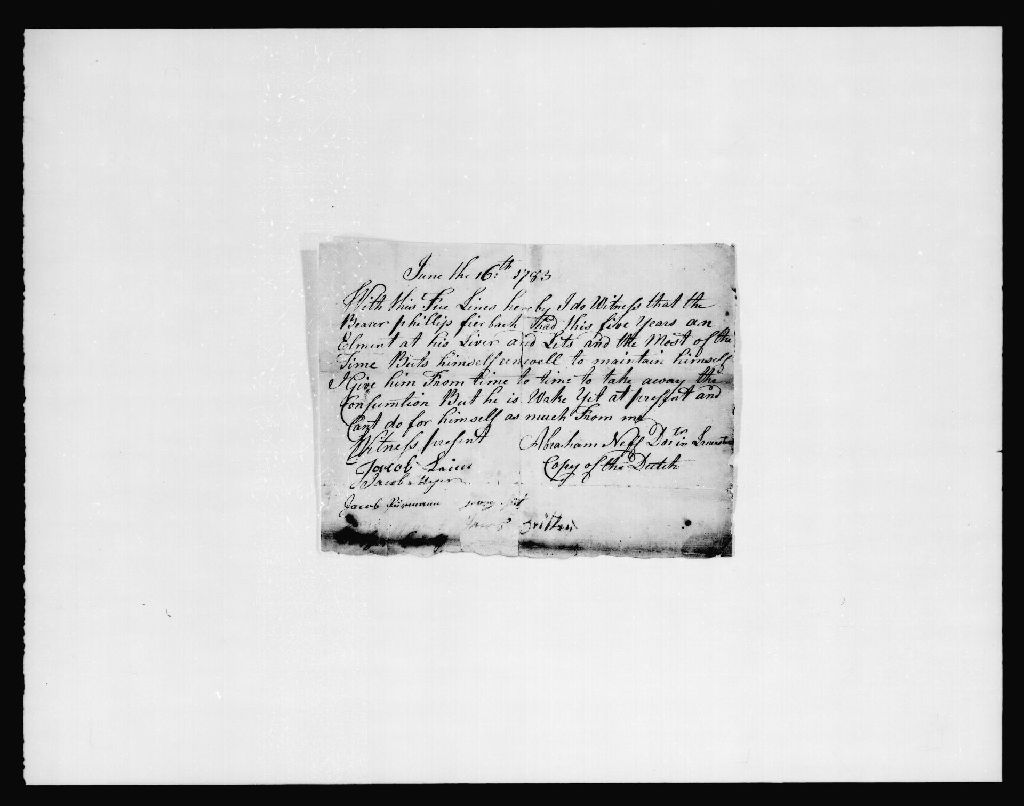 June the 16th 1783
With this Few Lines hereby I do Witness that the
Bearer phillip fierbach thad this five Years an
Elment at his Liver and Lits and the Most of the
Time Buts himself unewell to maintain himself
I Give him From time to time to take away the
Consumtion But he is Wake Yet at present and
Cant do for himself as much From me
Witness present Abraham Neff Docter in
Jacob
Jacob Copy of the Dutch
Jacob